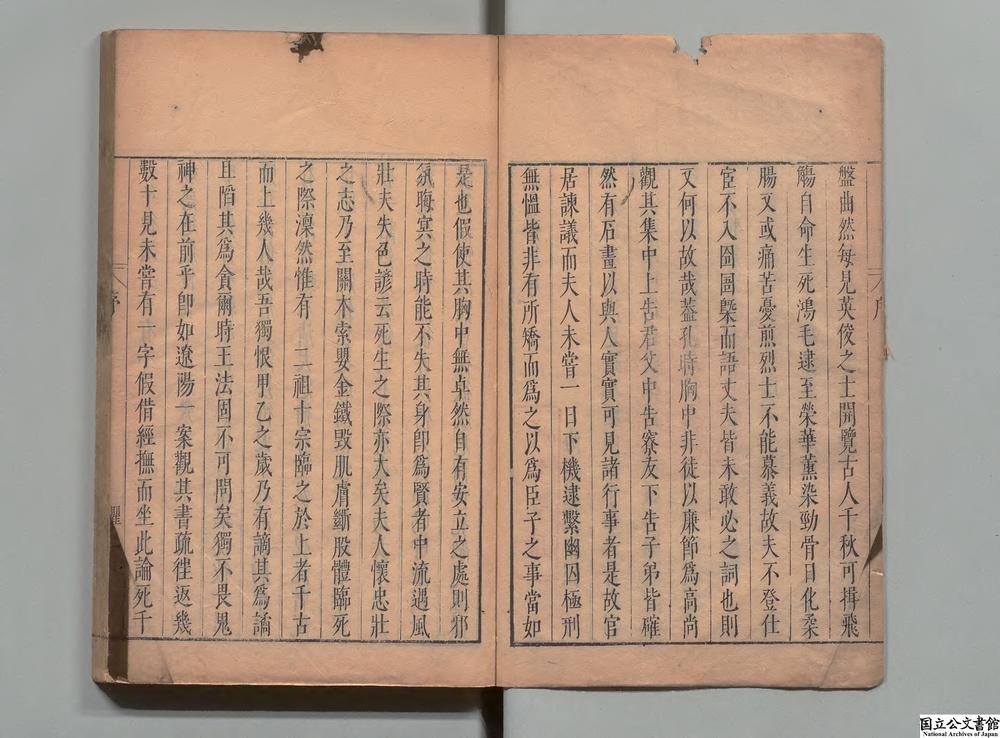 盤曲然每見英俊之士開覽古人千秋可揖飛
觴自命生死鴻毛逮至榮華薰染勁骨日化柔
腸又或痛苦憂煎烈士不能慕義故夫不登仕
宦不入囹圄槩而語丈夫皆未敢必之詞也則
又何以故哉蓋孔時胸中非徒以廉節爲高尚
觀其集中上告君父中告寮友下告子弟皆確
然有石畫以與人實實可見諸行事者是故官
居諫議而夫人未嘗一日下機逮繫幽囚極刑
無慍皆非有所矯而爲之以爲臣子之事當如
是也假使其胸中無卓然自有安立之處則邪
氛晦冥之時能不失其身卽爲賢者中流遇風
壯夫失色諺云死生之際亦大矣夫人懷忠壯
之志乃至關木索嬰金鐵毀肌膚斷股體臨死
之際凜然惟有 二祖十宗臨之於上者千古
而上幾人哉吾獨恨甲乙之歲乃有謫其爲譎
且䧟其爲貪爾時王法固不可問矣獨不畏鬼
神之在前乎卽如遼陽一案觀其書疏徃返幾
數十見未嘗有一字假借經撫而坐此論死千
序
國立公文書館
National Archives of Japan